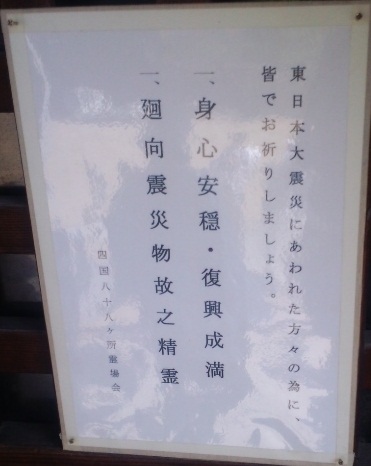 東日本大震災にあわれた方々の為に、
皆でお祈りしましょう。
一、身心安穏・復興成満
一、廻向震災物故之精霊
四国八十八ヶ所霊場会